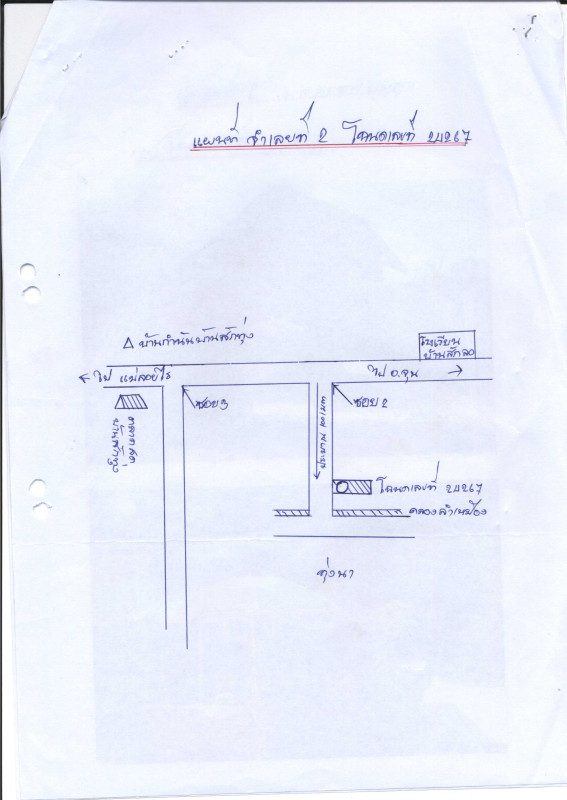 แผนที่ จำเลยที่ 2 โฉนดเลขที่ 24267
บ้านกำนันบ้านสักทุ่ง
โรงเรียน
บ้านสักลอ
ไป แม่ลอยไร่
ไป อ.จุน
ซอย 3
ซอย 2
ประมาณ
โฉนดเลขที่ 24267
คลองลำเหมือง
ทุ่งนา